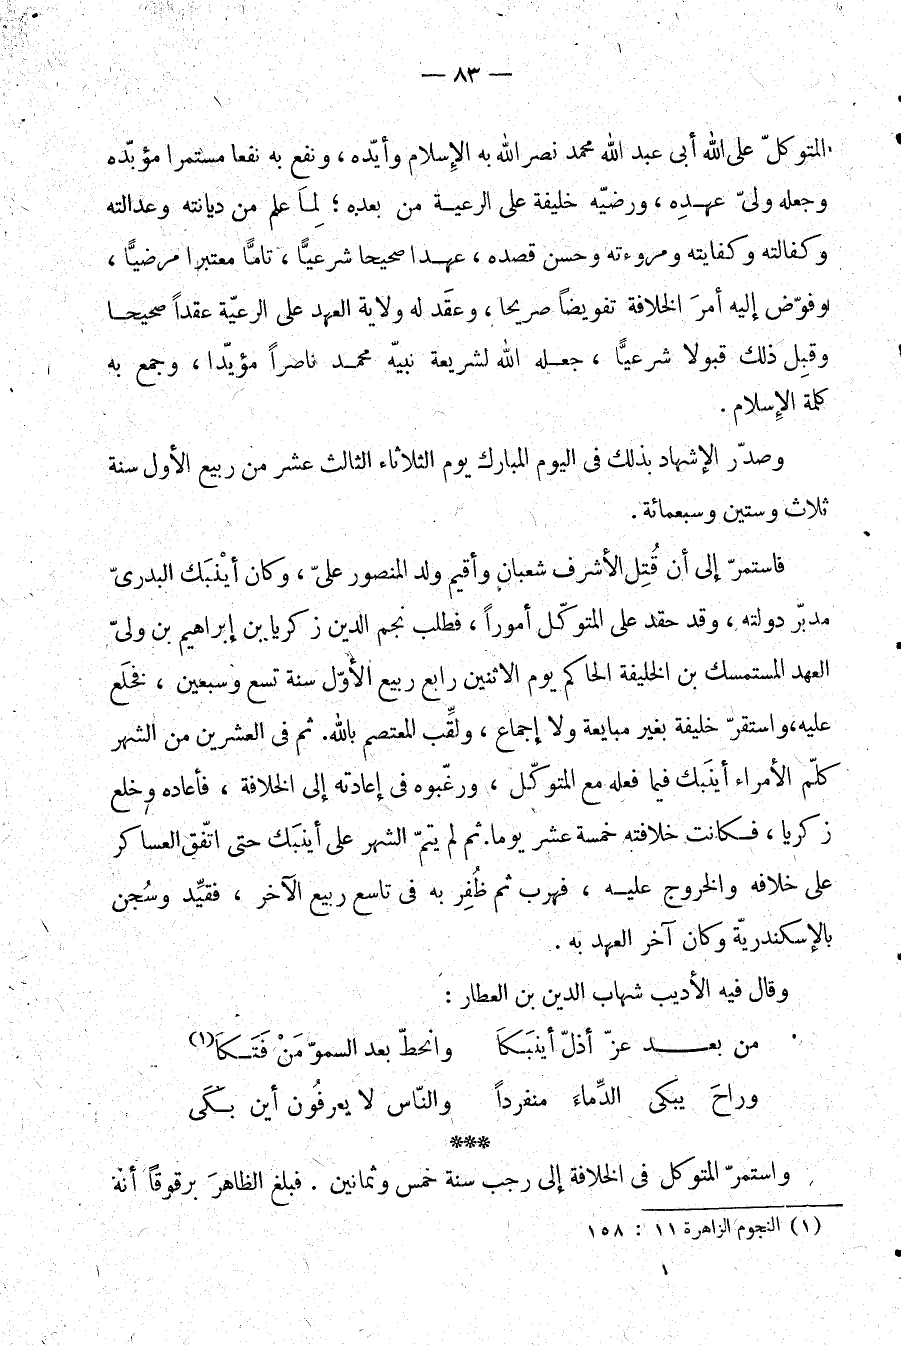 — ٨٣ —
المتوكلّ على الله أبى عبد الله محمد نصر الله به الإسلام وأيّده، ونفع به نفعا مستمرا مؤبّده
وجعله ولىّ عهـدِه ، ورضيّه خليفة على الرعيـة من بعده ؛ لِمـاَ علم من ديانته وعدالته
وكفالته وكفايته ومروءته وحسن قصده ، عهـدا صحيحا شرعيًّا ، تامًّا معتبرا مرضيًّا ،
وفوّض إليه أمرَ الخلافة تفويضاً صريحا ، وعقَد له ولاية العهد على الرعيّة عقداً صحيحـا
وقبِل ذلك قبولا شرعيًّا ، جعـله الله لشريعة نبيّه محمـد ناصراً مؤيّدا ، وجمع به
كلمة الإسلام .
وصدّر الإشهاد بذلك فى اليوم المبارك يوم الثلاثاء الثالث عشر من ربيع الأول سنة
ثلاث وستين وسبعمائة .
فاستمرّ إلى أن قُتِل الأشرف شعبان وأقيم ولد المنصور علىّ ، وكان أيْنَبَك البدرىّ
مدبّر دولته ، وقد حقد على المتوكّل أموراً ، فطلب نجم الدين زكريا بن إبراهيم بن ولىّ
العهد المستمسك بن الخليفة الحاكم يوم الاثنين رابع ربيع الأوّل سنة تسع وسبعين ، فخلَع
عليه، واستقرّ خليفة بغير مبايعة ولا إجماع ، ولقِّب المعتصم بالله. ثم فى العشرين من الشهر
كلّم الأمراء أينَبك فيما فعله مع المتوكّل ، ورغّبوه فى إعادته إلى الخلافة ، فأعاده وخلع
زكريا ، فـكانت خلافته خمسة عشر يوما. ثم لم يتمّ الشهر على أينَبَك حتى اتّفق العساكر
على خلافه والخروج عليـه ، فهرب ثم ظُفِر به فى تاسع ربيع الآخر ، فقيِّد وسُجن
بالإسكندريّة وكان آخر العهد به .
وقال فيه الأديب شهاب الدين بن العطار :
من بعـــد عزّ أذلّ أينَبَـكاَ وانحطّ بعد السموّ مَنْ فَتَـكاَ(١)
وراحَ يبكى الدِّماءَ منفرداً والنّاس لا يعرفُون أين بـكَى
***
واستمرّ المتوكل فى الخلافة إلى رجب سنة خمس وثمانين . فبلغ الظاهرَ برقوقاً أنّه
(١) النجوم الزاهرة ١١ : ١٥٨